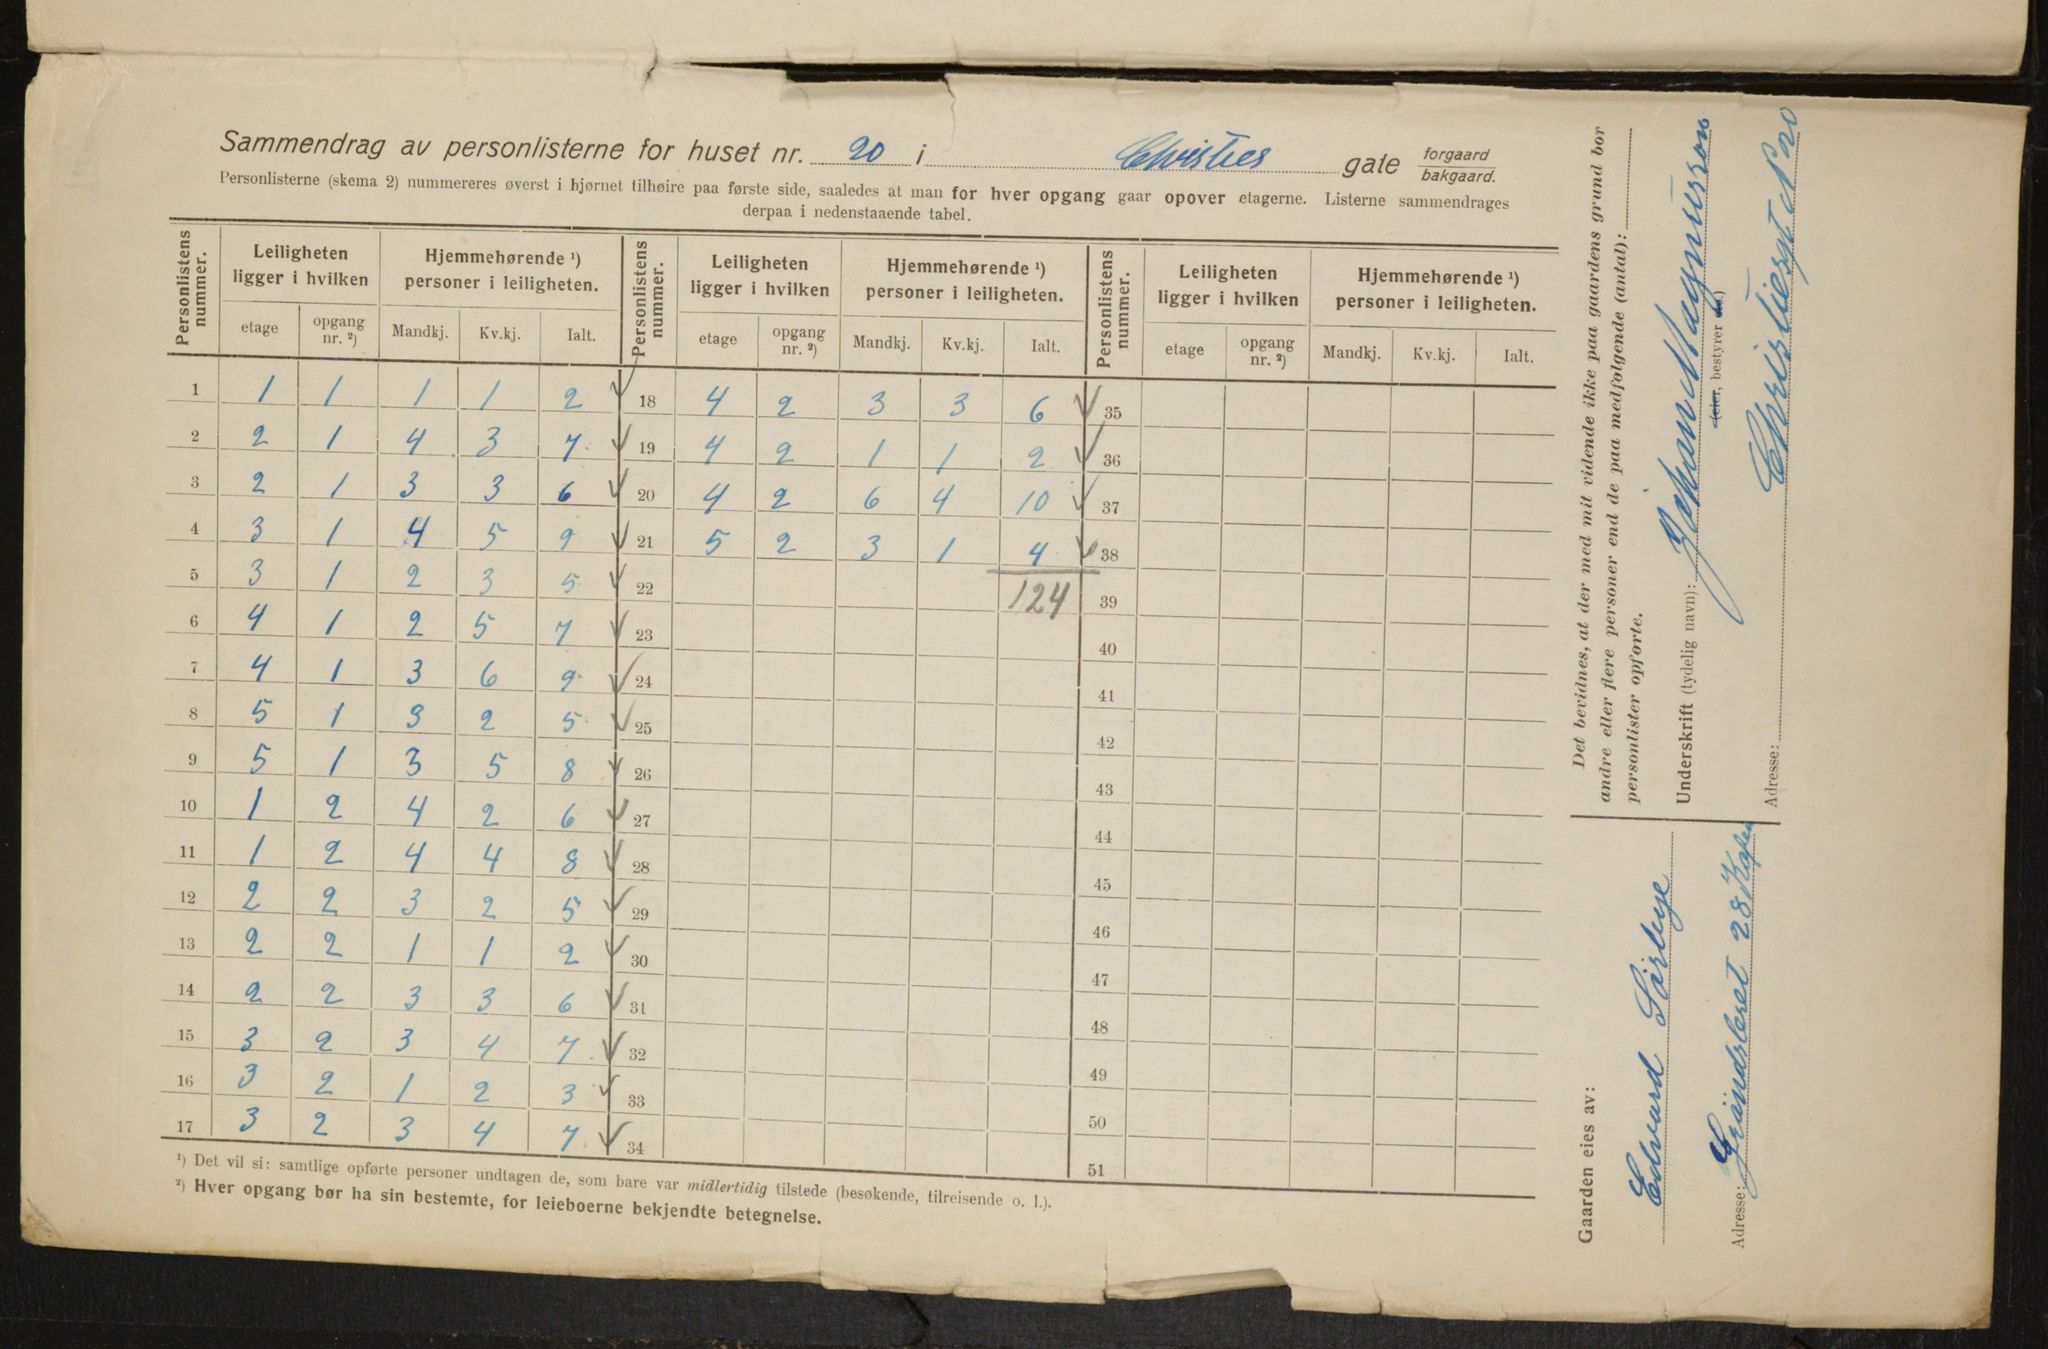 Sammendrag av personlisterne for huset nr. 20 i Christies gate forgaard bakgaard.
Personlisterne (skema 2) nummereres øverst i hjørnet tilhøire paa første side, saaledes at man for hver opgang gaar opover etagerne. Listerne sammendrages
derpaa i nedenstaaende tabel.
Personlistens nummer. Leiligheten ligger i hvilken Hjemmehørende ¹) personer i leiligheten. Personlistens nummer. Leiligheten ligger i hvilken Hjemmehørende ¹) personer i leiligheten. Personlistens nummer. Leiligheten ligger i hvilken Hjemmehørende ¹) personer i leiligheten.
etage opgang nr. ²) Mandkj. Kv.kj. Ialt. etage opgang nr. ²) Mandkj. Kv.kj. Ialt. etage opgang nr. ²) Mandkj. Kv.kj. Ialt.
1 1 1 1 1 2 18 4 2 3 3 6 35
2 2 1 4 3 7 19 4 2 1 1 2 36
3 2 1 3 3 6 20 4 2 6 4 10 37
4 3 1 4 5 9 21 5 2 3 1 4 38
5 3 1 2 3 5 22 124 39
6 4 1 2 5 7 23 40
7 4 1 3 6 9 24 41
8 5 1 3 2 5 25 42
9 5 1 3 5 8 26 43
10 1 2 4 2 6 27 44
11 1 2 4 4 8 28 45
12 2 2 3 2 5 29 46
13 2 2 1 1 2 30 47
14 2 2 3 3 6 31 48
15 3 2 3 4 7 32 49
16 3 2 1 2 3 33 50
17 3 2 3 4 7 34 51
¹) Det vil si: samtlige opførte personer undtagen de, som bare var midlertidig tilstede (besøkende, tilreisende o. l.).
²) Hver opgang bør ha sin bestemte, for leieboerne bekjendte betegnelse.
Det bevidnes, at der med mit vidende ikke paa gaardens grund bor
andre eller flere personer end de paa medfølgende (antal):
personlister opførte.
Underskrift (tydelig navn): Johan Magnusson
(eier, bestyrer etc.)
Adresse: Christiesgt N 20
Gaarden eies av:
Edvard
Adresse: 28